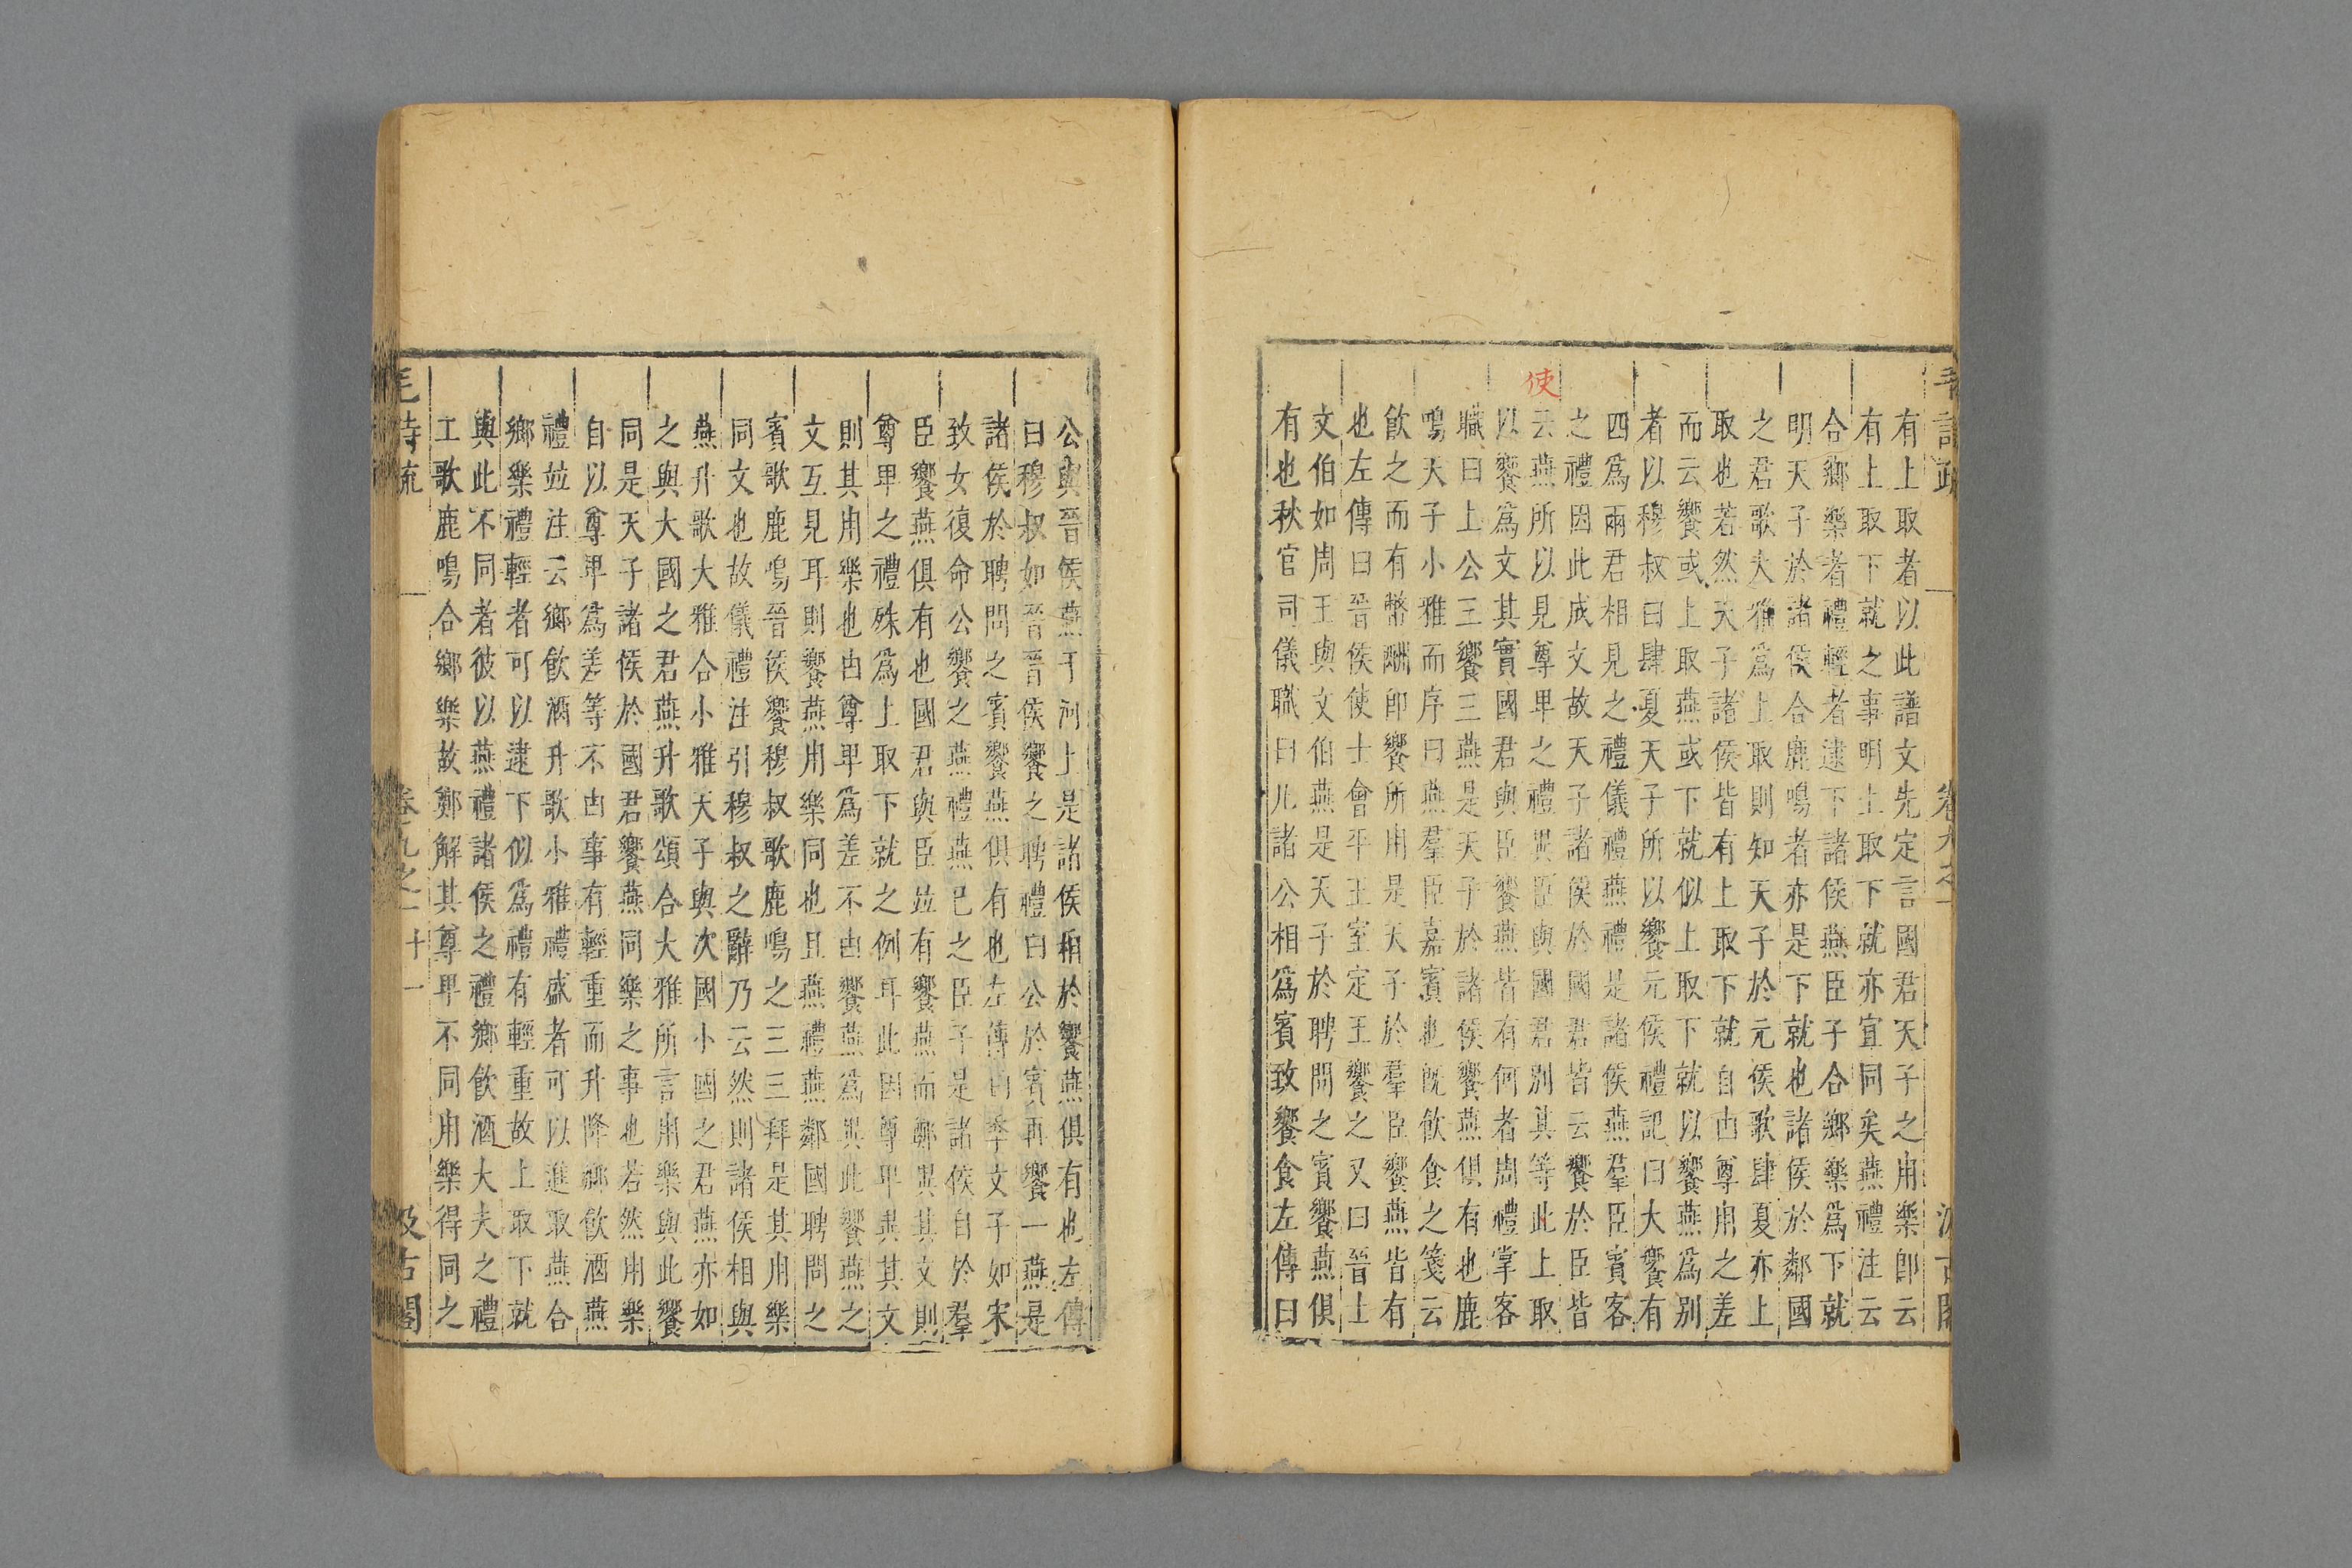 有上取者以此譜文先定言國君天子之用樂即云
有上取下就之事明上取下就亦宜同矣燕禮注云
合鄉樂者禮輕者逮下諸侯燕臣子合鄉樂爲下就
明天子於諸侯合鹿鳴者亦是下就也諸侯於鄰國
之君歌大雅爲上取則知天子於元侯歌肆夏亦上
取也若然天子諸侯皆有上取下就自由尊用之差
而云饗或上取燕或下就似上取下就以饗燕爲別
者以穆叔曰肆夏天子所以饗元侯禮記曰大饗有
四爲兩君相見之禮儀禮燕禮是諸侯燕羣臣賓客
之禮因此成文故天子諸侯於國君皆云饗於臣皆
使
云燕所以見尊卑之禮異臣與國君別其等此上取
以饗爲文其實國君與臣饗燕皆有何者周禮掌客
職曰上公三饗三燕是天子於諸侯饗燕俱有也鹿
鳴天子小雅而序曰燕羣臣嘉賓也旣飲食之箋云
飲之而有幣酬即饗所用是天子於羣臣饗燕皆有
也左傳曰晉侯使士會平王室定王饗之又曰晉士
文伯如周王與文伯燕是天子於聘問之賓饗燕俱
有也秋官司儀職曰凡諸公相爲賓致饗食左傳曰
公與晉侯燕于河上是諸侯相於饗燕俱有也左傳
曰穆叔如晉晉侯饗之聘禮曰公於賓再饗一燕是
諸侯於聘問之賓饗燕俱有也左傳曰季文子如宋
致女復命公饗之燕禮燕已之臣子是諸侯自於羣
臣饗燕俱有也國君與臣竝有饗燕而鄭異其文則
尊卑之禮殊爲上取下就之例耳此因尊卑異其文
則其用樂也由尊卑爲差不由饗燕爲異此饗燕之
文互見耳則饗燕用樂同也且燕禮燕鄰國聘問之
賓歌鹿鳴晉侯饗穆叔歌鹿鳴之三三拜是其用樂
同文也故儀禮注引穆叔之辭乃云然則諸侯相與
燕升歌大雅合小雅天子與次國小國之君燕亦如
之與大國之君燕升歌頌合大雅所言用樂與此饗
同是天子諸侯於國君饗燕同樂之事也若然用樂
自以尊卑爲差等不由事有輕重而升降鄉飲酒燕
禮竝注云鄉飲酒升歌小雅禮盛者可以進取燕合
鄉樂禮輕者可以逮下似爲禮有輕重故上取下就
與此不同者彼以燕禮諸侯之禮鄉飲酒大夫之禮
工歌鹿鳴合鄉樂故鄭解其尊卑不同用樂得同之
毛詩疏 卷九之一 十一 汲古閣